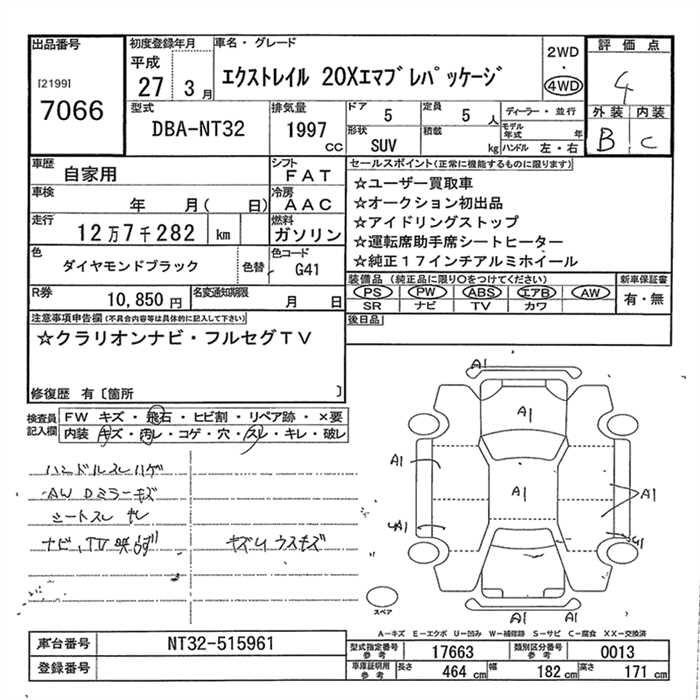 出品番号
[2199]
7066
初度登録年月
平成
27 3月
車名・グレード
エクストレイル 20Xエマブレパッケージ
2WD
・
4WD
評価点
4
外装 内装
B C
型式
DBA-NT32
排気量
1997
cc
ドア
5
定員
5
人
ディーラー・並行
形状
SUV
積載
kg
モデル年式 年
ハンドル 左・右
車歴
自家用
シフト
FAT
車検
年 月( 日)
冷房
AAC
走行
12万7千282 km
燃料
ガソリン
色
ダイヤモンドブラック
色替
色コード
G41
R券
10,850円
名変通知期限
月 日
セールスポイント(正常に機能するものに限ります)
☆ユーザー買取車
☆オークション初出品
☆アイドリングストップ
☆運転席助手席シートヒーター
☆純正17インチアルミホイール
装備品(純正品に限り○をつけてください)
PS PW ABS エアB AW
SR ナビ TV カワ
新車保証書
有・無
後日品
注意事項申告欄(不具合内容等は具体的に記入して下さい)
☆クラリオンナビ・フルセグTV
修復歴 有〔箇所 〕
検査員記入欄
FW キズ・飛石・ヒビ割・リペア跡・×要
内装 キズ・汚レ・コゲ・穴・スレ・キレ・破レ
ハンドルスレハゲ
AW Dミラーキズ
シートスレ
ナビ、TV映らず
A1
A1
A1
A1
A1
A1
A1
A1
A1
スペア
A-キズ E-エクボ U-凹み W-補修跡 S-サビ C-腐食 XX-交換済
車台番号
NT32-515961
登録番号
型式指定番号 参考
17663
類別区分番号 参考
0013
車庫証明用 参考
長さ 464 cm 幅 182 cm 高さ 171 cm